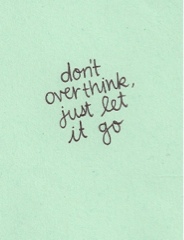 don't
overthink,
just let
it go